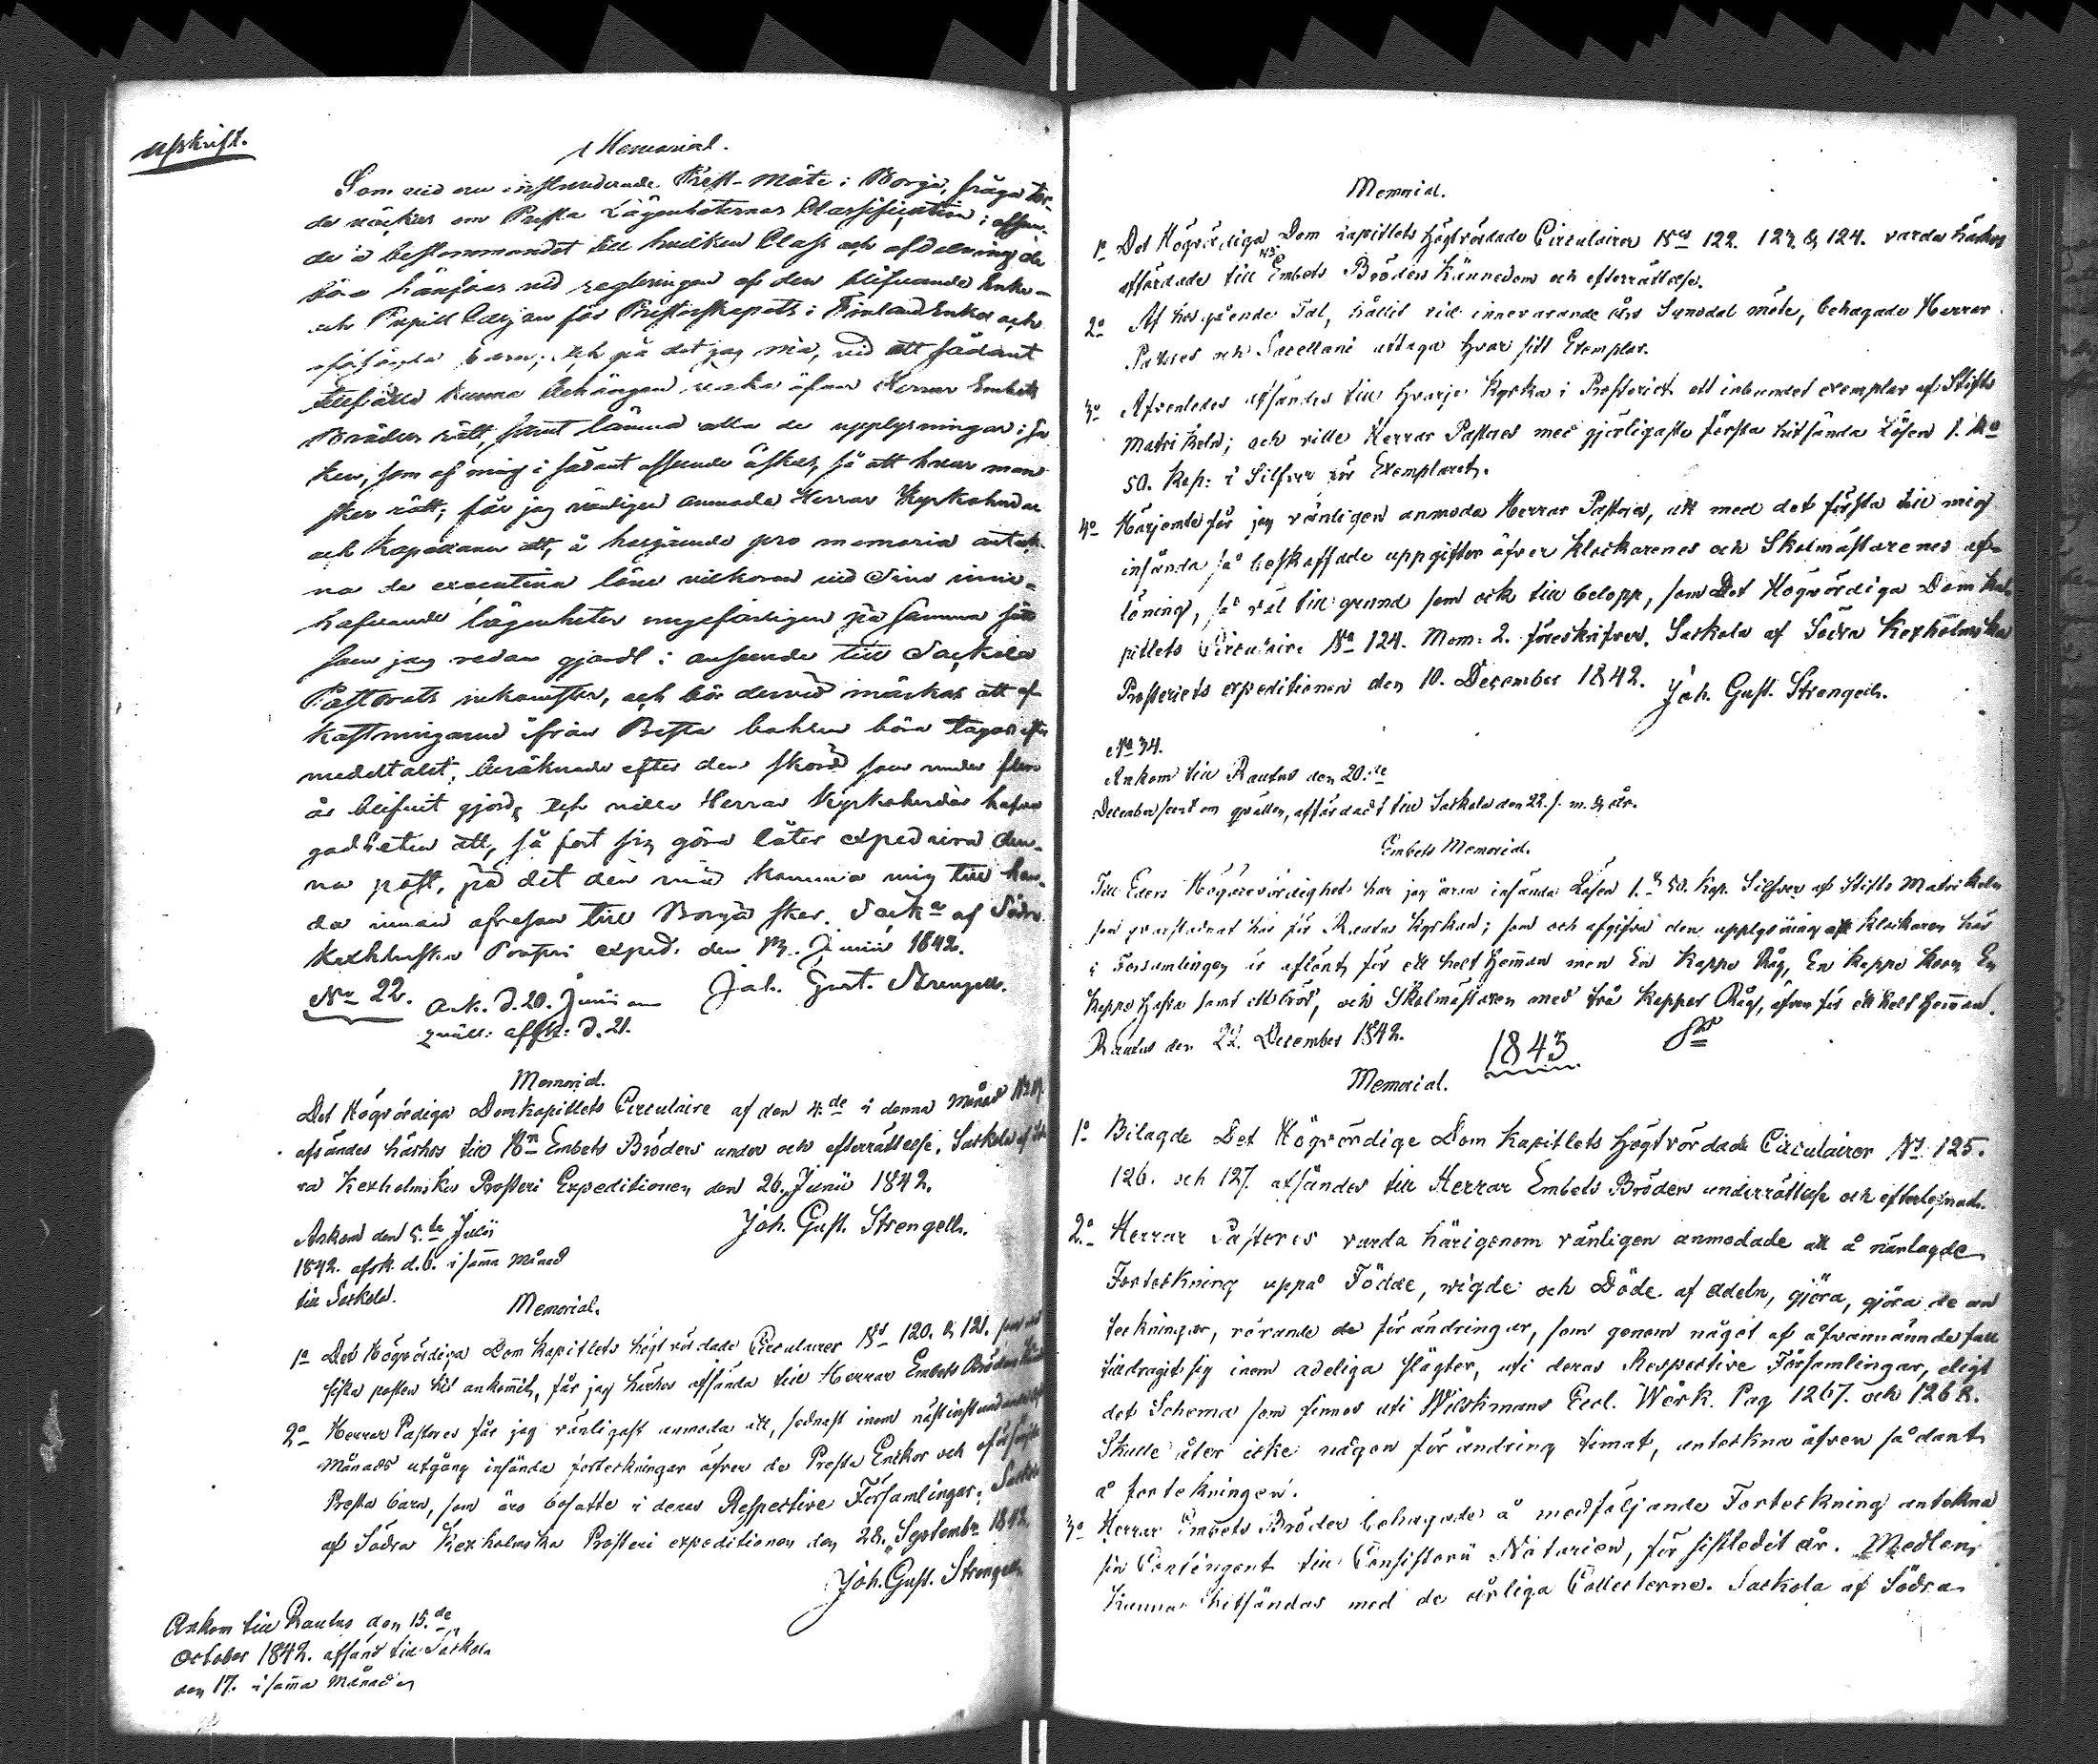 Afskrift.
Memorial.
Som vid nu instundande Prest-Möte i Borgå, fråga tor-
de väckas om Presta Lägenheternas Classification i afseen-
de å bestämmandet till hvilken Class och afdelning de
böra hänföras vid regleringen af den blifvande Enke-
och Pupill Cassan för Presterskapets i Finland Enkor och
oförsörgda barn; Och på det jag må, vid ett sådant
tillfälle kunna behörigen vaka öfver Herrar Embets
Bröders rätt, samt lämna alla de upplysningar i sa
ken, som af mig i sådant afseende äskas, så att hvar man
sker rätt; får jag vänligen anmoda Herrar Kyrkoherdar
och Kapellaner att, å härgående pro memoria anteck-
na de löne vilkoren vid Sina inne-
hafvande lägenheter ungefärligen på samma sätt
som jag redan gjordt i anseende till Sackola
Pastorats inkomster, och bör dervid märkas att af-
kastningarne ifrån Presta bohlen böra tagas efter
medeltalet, beräknade efter den skörd som under flera
år blifvit gjord, Och ville Herrar Kyrkoherdar hafva
godheten att, så fort sig göra låter expediera den-
na post, på det den må komma mig till han-
da innan afresan till Borgå sker. Sack:a af Södra
Kexholmska Prosteri exped. den 13. Junii 1842.
No 22. Ank. d. 20. Junii om Joh. Gust. Strengell.
qväll: affsk: d. 21.
Memorial.
Det Högvördiga Domkapitlets Circulaire af den 4.de i denna Månad No 119.
afsändes härhos till Hrr Embets Bröders under och efterrättelse. Sackola af Söd-
ra Kexholmska Prosteri Expeditionen den 26. Junii 1842.
Ankom den 5.te Julii Joh. Gust. Strengell.
1842. afsk. d. 6. i samma Månad
till Sackola.
Memorial.
1o Det Högvördiga Dom Kapitlets högtvördade Circulairer No 120. & 121. som med
sista posten hit ankommit, får jag härhos afsända till Herrar Embets Bröders
2o Herrar Pastores får jag vänligast anmoda att, sednast inom näst instundande
Månads utgång insända forteckningar öfver de Presta Enckor och oförsörgda
Presta barn, som äro bosatte i deras Respective Församlingar. Sackola
af Södra Kexholmska Prosteri expeditionen den 28. Septembr. 1842.
Joh. Gust. Strengell.
Ankom till Rautus den 15.de
October 1842. afsänd till Sackola
den 17. i samma Månad
Memorial.
1o Det Högvördiga Dom capitlets högtvördade Circulairer No 122. 123. & 124. varda härhos
affärdade till Embets Bröders Kännedom och efterrättelse.
2o Af hosgående Tal, hållit vid innevarande års Synodal möte, behagade Herrar
Pastores och Sacellani uttaga hvar sitt Exemplar.
3o Afvenledes afsändes till hvarje Kyrka i Prosteriet ett inbundet exemplar af Stifts
Matrikeln; och ville Herrar Pastores med gjörligaste första hitsända Lösen 1. Ro
50. Kop: i Silfver för Exemplaret.
4o Härjemte får jag vänligen anmoda Herrar Pastores, att med det första till mig
insända så beskaffade uppgifter öfver klockarenes och Skolmästarenes af-
löning, så väl till grund som ock till belopp, som Det Högvördiga Dom Ka-
pitlets Circulaire No 124. Mom: 2. föreskrifver. Sackola af Södra Kexholmska
Prosteriets expeditionen den 10. December 1842. Joh. Gust. Strengell.
No 34.
Ankom till Rautus den 20.de
December sent om qvällen, affärdadt till Sackola den 22. s. m. & år.
Embets Memorial.
Till Eders Högärevördighet har jag äran insända Lösen 1. R 50. Kop. Silfver af Stifts Matrikeln
som qvarstadnat här för Rautus kyrkan; som och afgifva den upplysning att klockaren här
i Församlingen är aflönt, för ett helt hemman men En Kappe Råg, En kappe Korn En
Kappe hafra samt , och Skolmästaren med två kappor Råg, äfven för ett helt hemman.
Rautus den 22. December 1842.
1843
Memorial.
1o Bilagde Det Högvördige Dom Kapitlets högtvördade Circulairer No 125.
126. och 127. afsändes till Herrar Embets Bröders underrättelse och efterlefnad.
2o Herrar Pastores varda härigenom vänligen anmodade att å närlagde
Forteckning uppå Födde, wigde och Döde af adeln, gjöra, gjöra de an
teckningar, rörande de förändringar, som genom något af ofvannämnde fall
tilldragit sig inom adeliga slägter, uti deras Respective Församlingar, eligt
det Schema som finnes uti Wilskmans Eccl. Wärk. Pag 1267. och 1268.
Skulle åter icke någon förändring timat, anteckna äfven sådant
å forteckningen.
3o Herrar Embets Bröder behagade å medföljande Forteckning antekna
sin Contingent till Consistorii Notarien, för sistledit år. Medlen
kunna hitsändas med de årliga Collecterne. Sackola af Södra